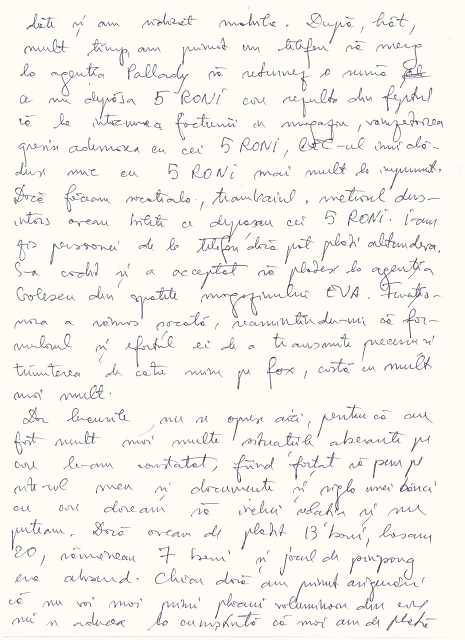 dăți și am vobzat mobila. După, hăt,
mult timp am primit un telefon să merg
la agenția Pallady să returnez o sumă
ce nu depășea 5 RONI care rezulta din faptul
că la întocmirea facturii în magazin, vânzătoarea
greșise adunarea cu cei 5 RONI, CEC-ul îmi dă-
duse mie cu 5 RONI mai mult la împrumut.
Dacă făceam socoteala, tramvaiul, metroul dus-
întors aveau bilete ce depășeau cei 5 RONI. I-am
zis persoanei de la telefon dacă pot plăti altundeva.
S-a codit și a acceptat să plătesc la agenția
Golescu din spatele magazinului EVA. Funcțio-
nara a rămas șocată, reamintindu-mi că for-
mularul și efortul ei de a transmite precum și
trimiterea de către mine pe fax, costă cu mult
mai mult.
Dar lucrurile nu se opresc aici, pentru că au
fost mult mai multe situațiile aberante pe
care le-am constatat, fiind forțat să pun pe
site-ul meu și documente și sigla unei bănci
cu care doream să închei relația și nu
puteam. Dacă aveam de plătit 13 bani, lăsam
20, rămâneau 7 bani și jocul de pingpong
era absurd. Chiar dacă am primit asigurări
că nu voi mai primi plicuri voluminoase din care
mi se aducea la cunoștință că mai am de plată